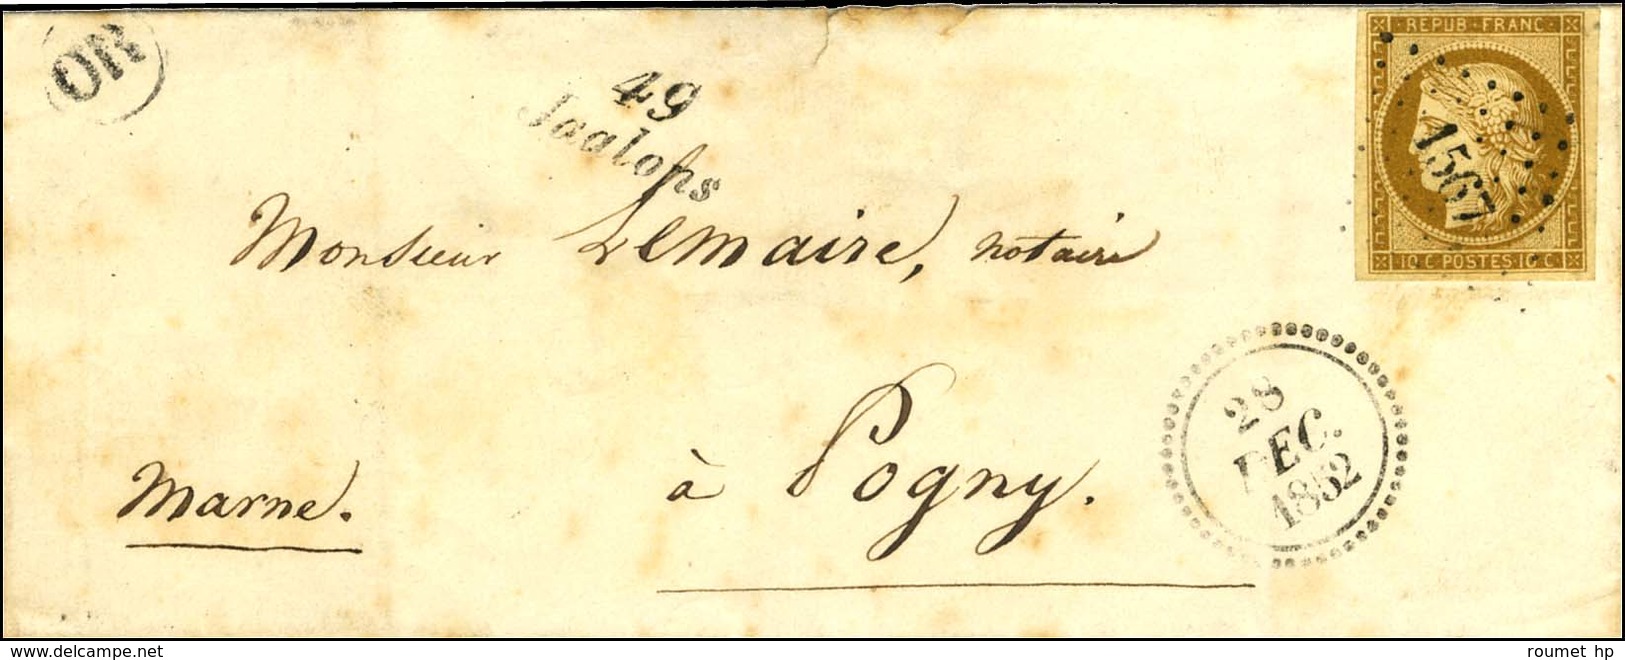 OR
49
Jaalons
REPUB·FRANC·
1567
10 C·POSTES·10 C·
Monsieur Lemaire, notaire
à Pogny.
Marne.
28
DEC.
1852
delcampe.net
roumet hp